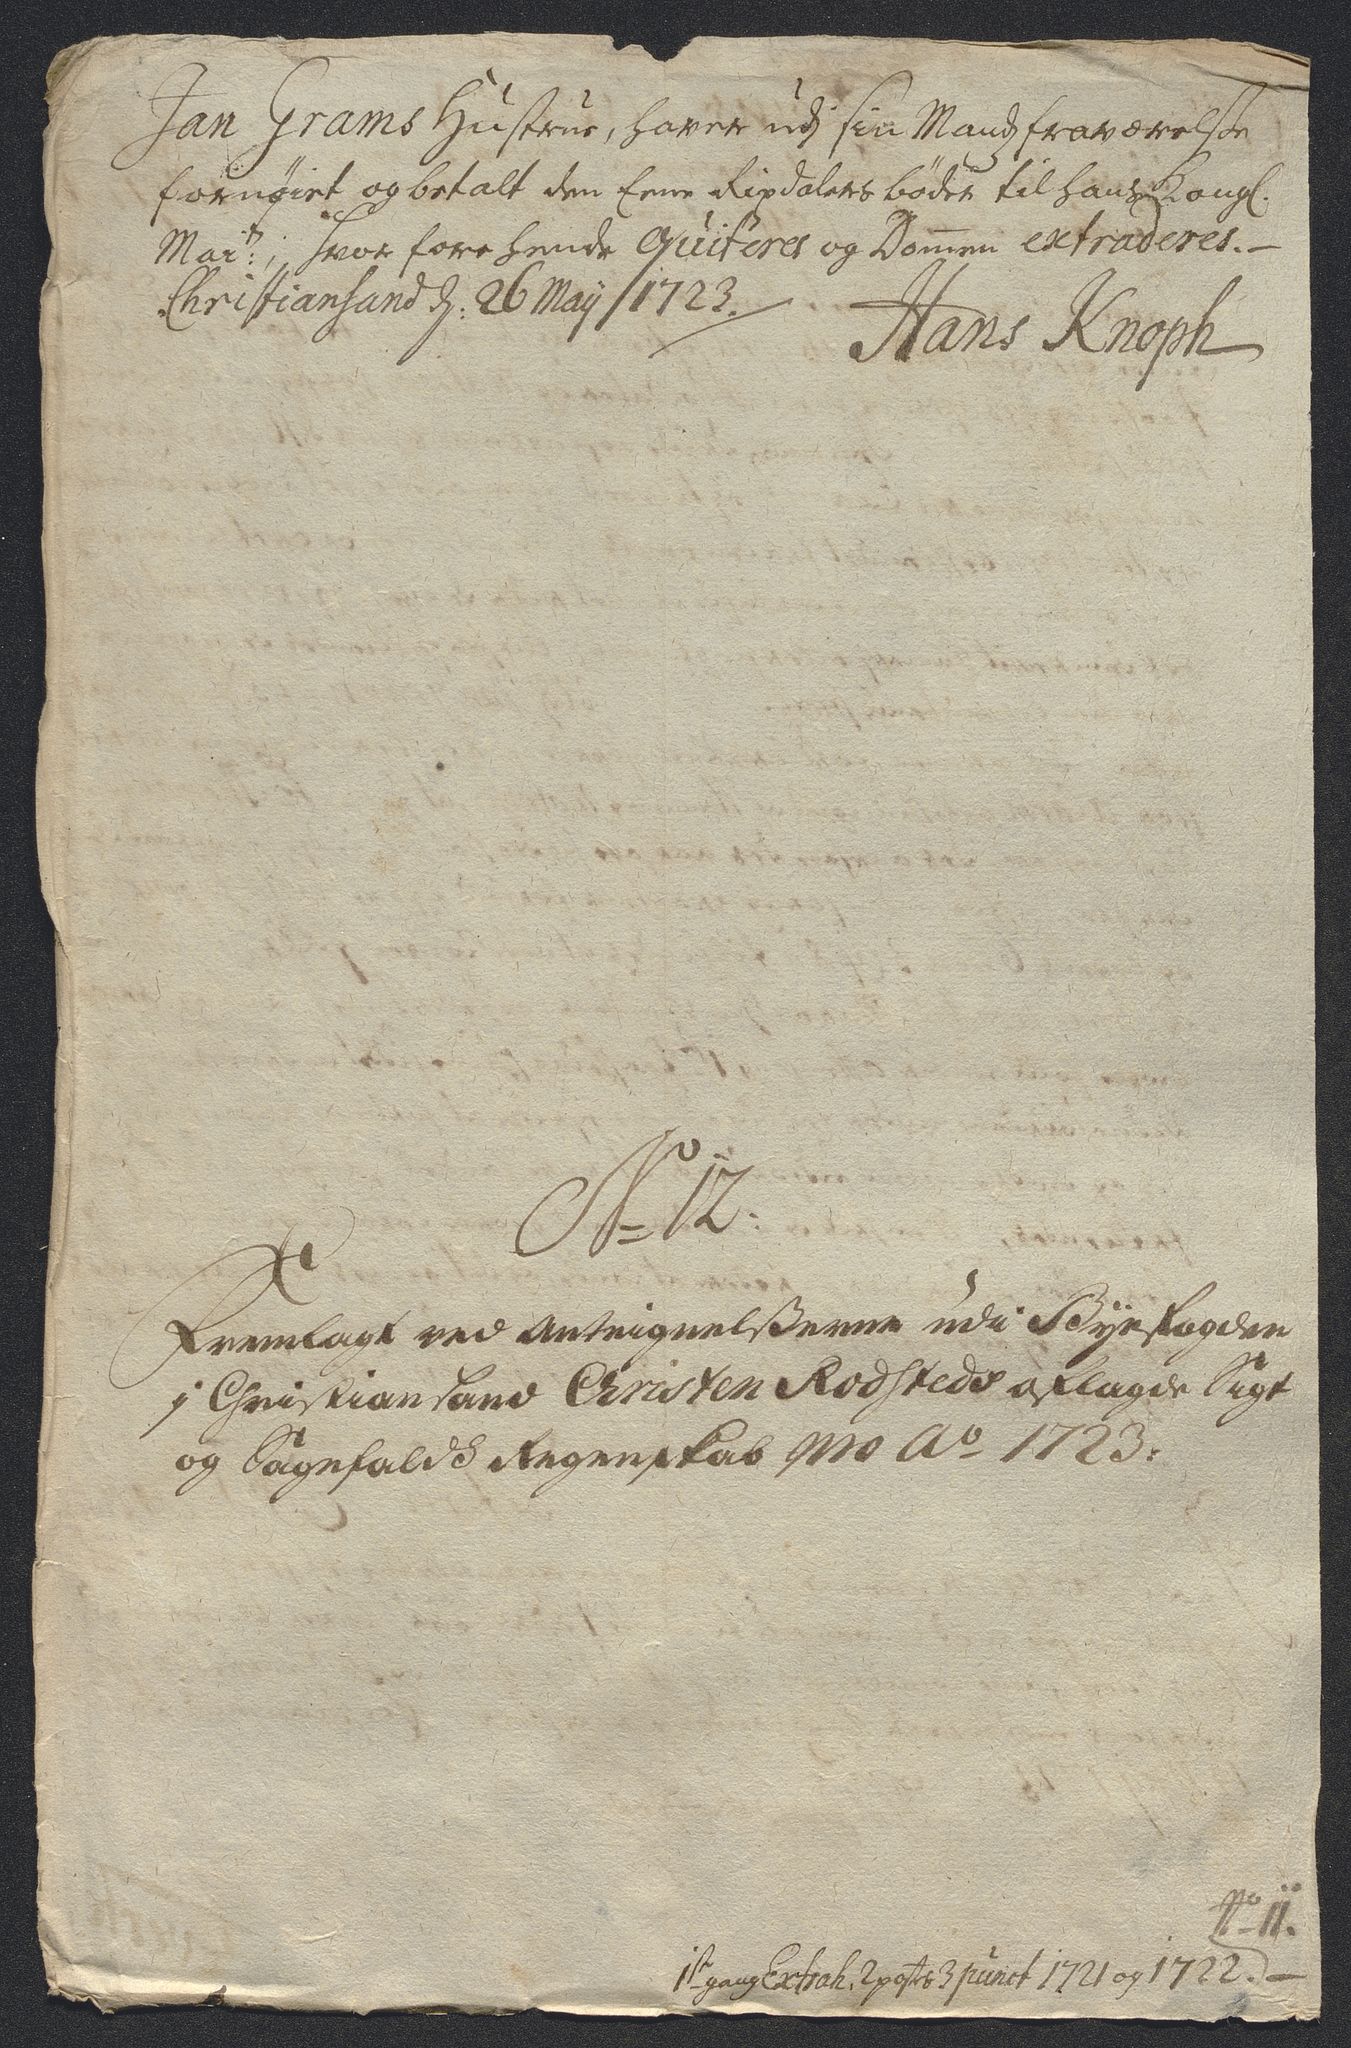 Jan Grams Hustrue, haver udj sin Mands fraværelse
fornøiet og betalt den Eene Rixdalers bøder til hans Kongl.
Mait:, hvor fore hende quiteres og Dom̅en extraderes.—
Christiansand d: 26 Maij 1723.
Hans Knoph
No 12:
Fremlagt ved Anteignelsserne udi Byefogden
j Christiansand Christen Rodsteds aflagde Sigt
og Sagefalds Regenskab pro Ao 1723:
No 11.
1st gang Extrah. 2 posts 3 punct 1721 og 1722.—